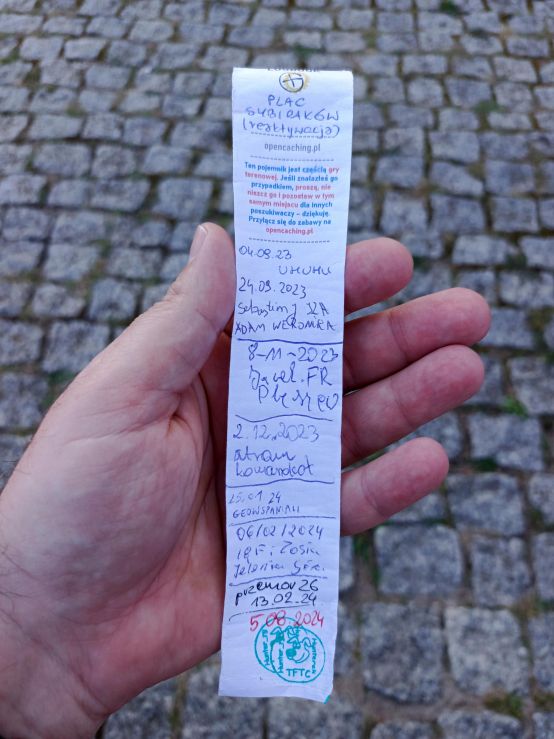 PLAC
SYBIRAKÓW
(reaktywacja)
opencaching.pl
Ten pojemnik jest częścią gry
terenowej. Jeśli znalazłeś go
przypadkiem, proszę, nie
niszcz go i pozostaw w tym
samym miejscu dla innych
poszukiwaczy – dziękuję.
Przyłącz się do zabawy na
opencaching.pl
04.09.23
UHUHU
24.09.2023
Sebastian J
ADAM WERONIKA
8-11-2023
Jacek.FR
2.12.2023
atram
kowankot
25.01.24
GEOWSPANIALI
06/02/2024
i Zosia
Jelenia Góra
przemor26
13.02.24
5 08 2024
TFTC